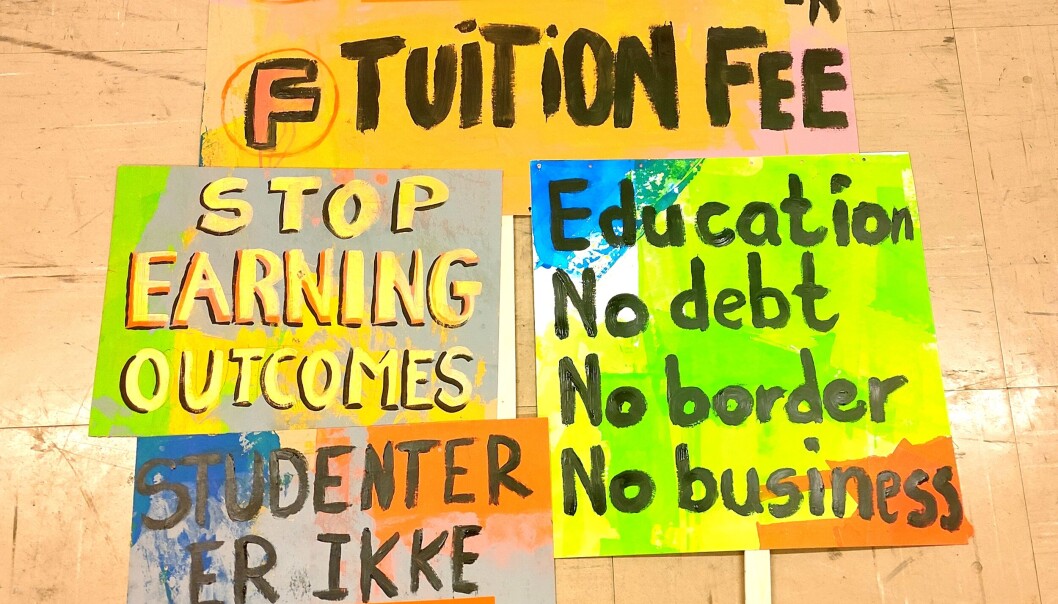 F TUITION FEE
STOP
EARNING
OUTCOMES
Education
No debt
No border
No business
STUDENTER
ER IKKE